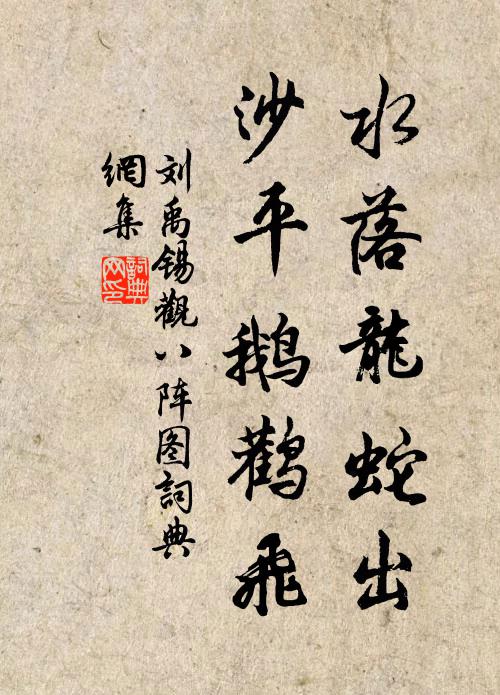 水落龍蛇出
沙平鵝鸛飛
刘禹锡觀八阵图詞典
網集
詞典
网印